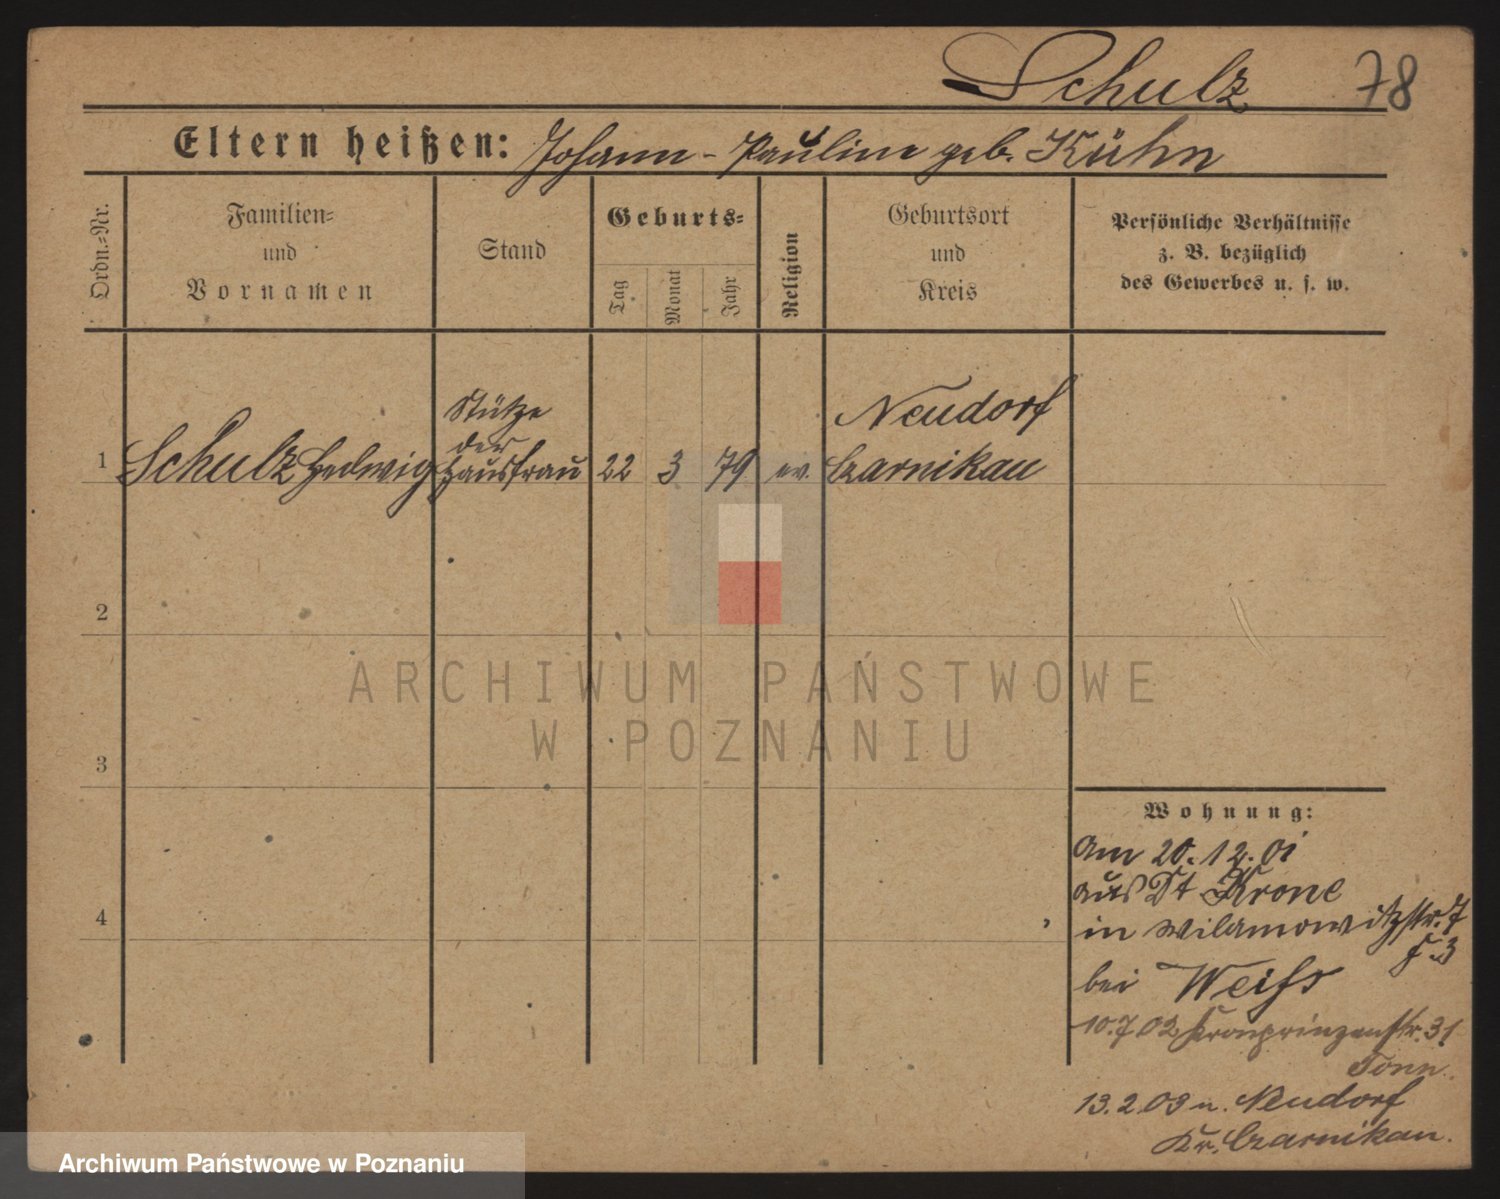 Schulz 78
Eltern heißen: Johann - Pauline geb. Kühn
Ordn.=Nr.
Familien=
und
Vornamen
Stand
Geburts=
Tag
Monat
Jahr
Religion
Geburtsort
und
Kreis
Persönliche Verhältnisse
z. B. bezüglich
des Gewerbes u. s. w.
Stütze
der
Neudorf
1 Schulz Hedwig Hausfrau 22 3 79 ev. Czarnikau
2
ARCHIWUM PAŃSTWOWE
W POZNANIU
3
Wohnung:
am 20.12.01
aus Dt Krone
4
in Wilamowitzstr. 7
bei Weiss
10.7.02 Kronprinzenstr. 31
Tonn.
13.2.03 n. Neudorf
Kr. Czarnikau.
Archiwum Państwowe w Poznaniu